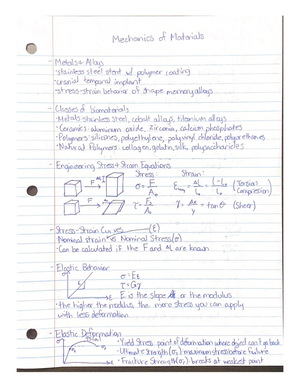 Mechanics of Materials
- Metals + Alloys
• stainless steel stent w/ polymer coating
• cranial temporal implant
• stress-strain behavior of shape memory alloys
- Classes of biomaterials
• Metals: stainless steel, cobalt alloys, titanium alloys
• Ceramics: aluminum oxide, zirconia, calcium phosphates
• Polymers: silicones, polyethylene, polyvinyl chloride, polyurethanes
• Natural Polymers: collagen, gelatin, silk, polysaccharides
- Engineering Stress + Strain Equations
Stress: Strain:
F σ = F/A₀ = ΔL/L₀ = L-L₀/L₀ (Tension/Compression)
F τ = F/A₀ γ = Δx/y = tan θ (Shear)
- Stress-Strain Curves (ε)
Nominal strain vs Nominal Stress (σ)
• Can be calculated if the F and ΔL are known
- Elastic Behavior
σ = Eε
τ = Gγ
E is the slope or the modulus
• the higher the modulus, the more stress you can apply
with less deformation
- Elastic Deformation
• Yield Stress: point of deformation where object can't go back
• Ultimate strength (σ) maximum stress before failure
• Fracture Strength (σ) breaks at weakest point